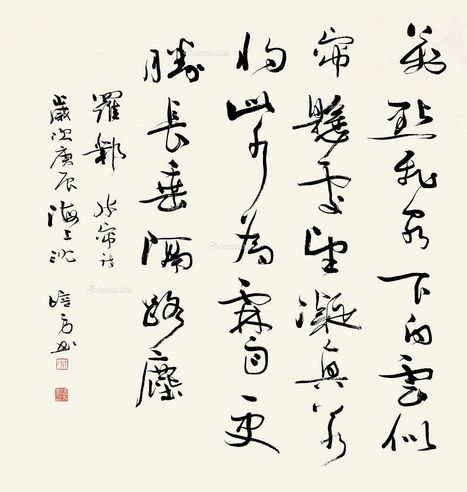 萬點飛泉下白雲似
帘懸處望凝真若
將此水為霖雨更
勝長垂隔路塵
羅鄴 水帘詩
歲次庚辰海上沈培方書